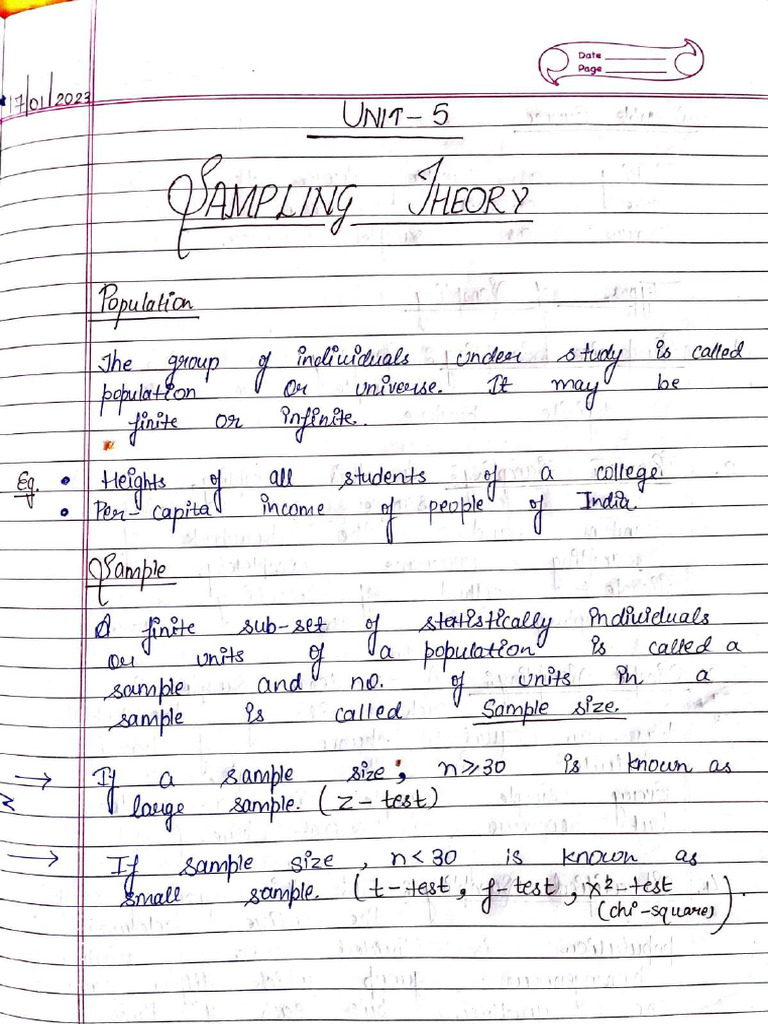 Date
Page
17/01/2023
UNIT-5
SAMPLING THEORY
Population
The group of individuals under study is called
population or universe. It may be
finite or infinite.
Eg. • Heights of all students of a college.
• Per-capita income of people of India.
Sample
A finite sub-set of statistically individuals
or units of a population is called a
sample and no. of units in a
sample is called Sample size.
→ If a sample size, n≥30 is known as
large sample. (Z-test)
→ If sample size, n<30 is known as
small sample. (t-test, f-test, χ²-test
(chi-square)).